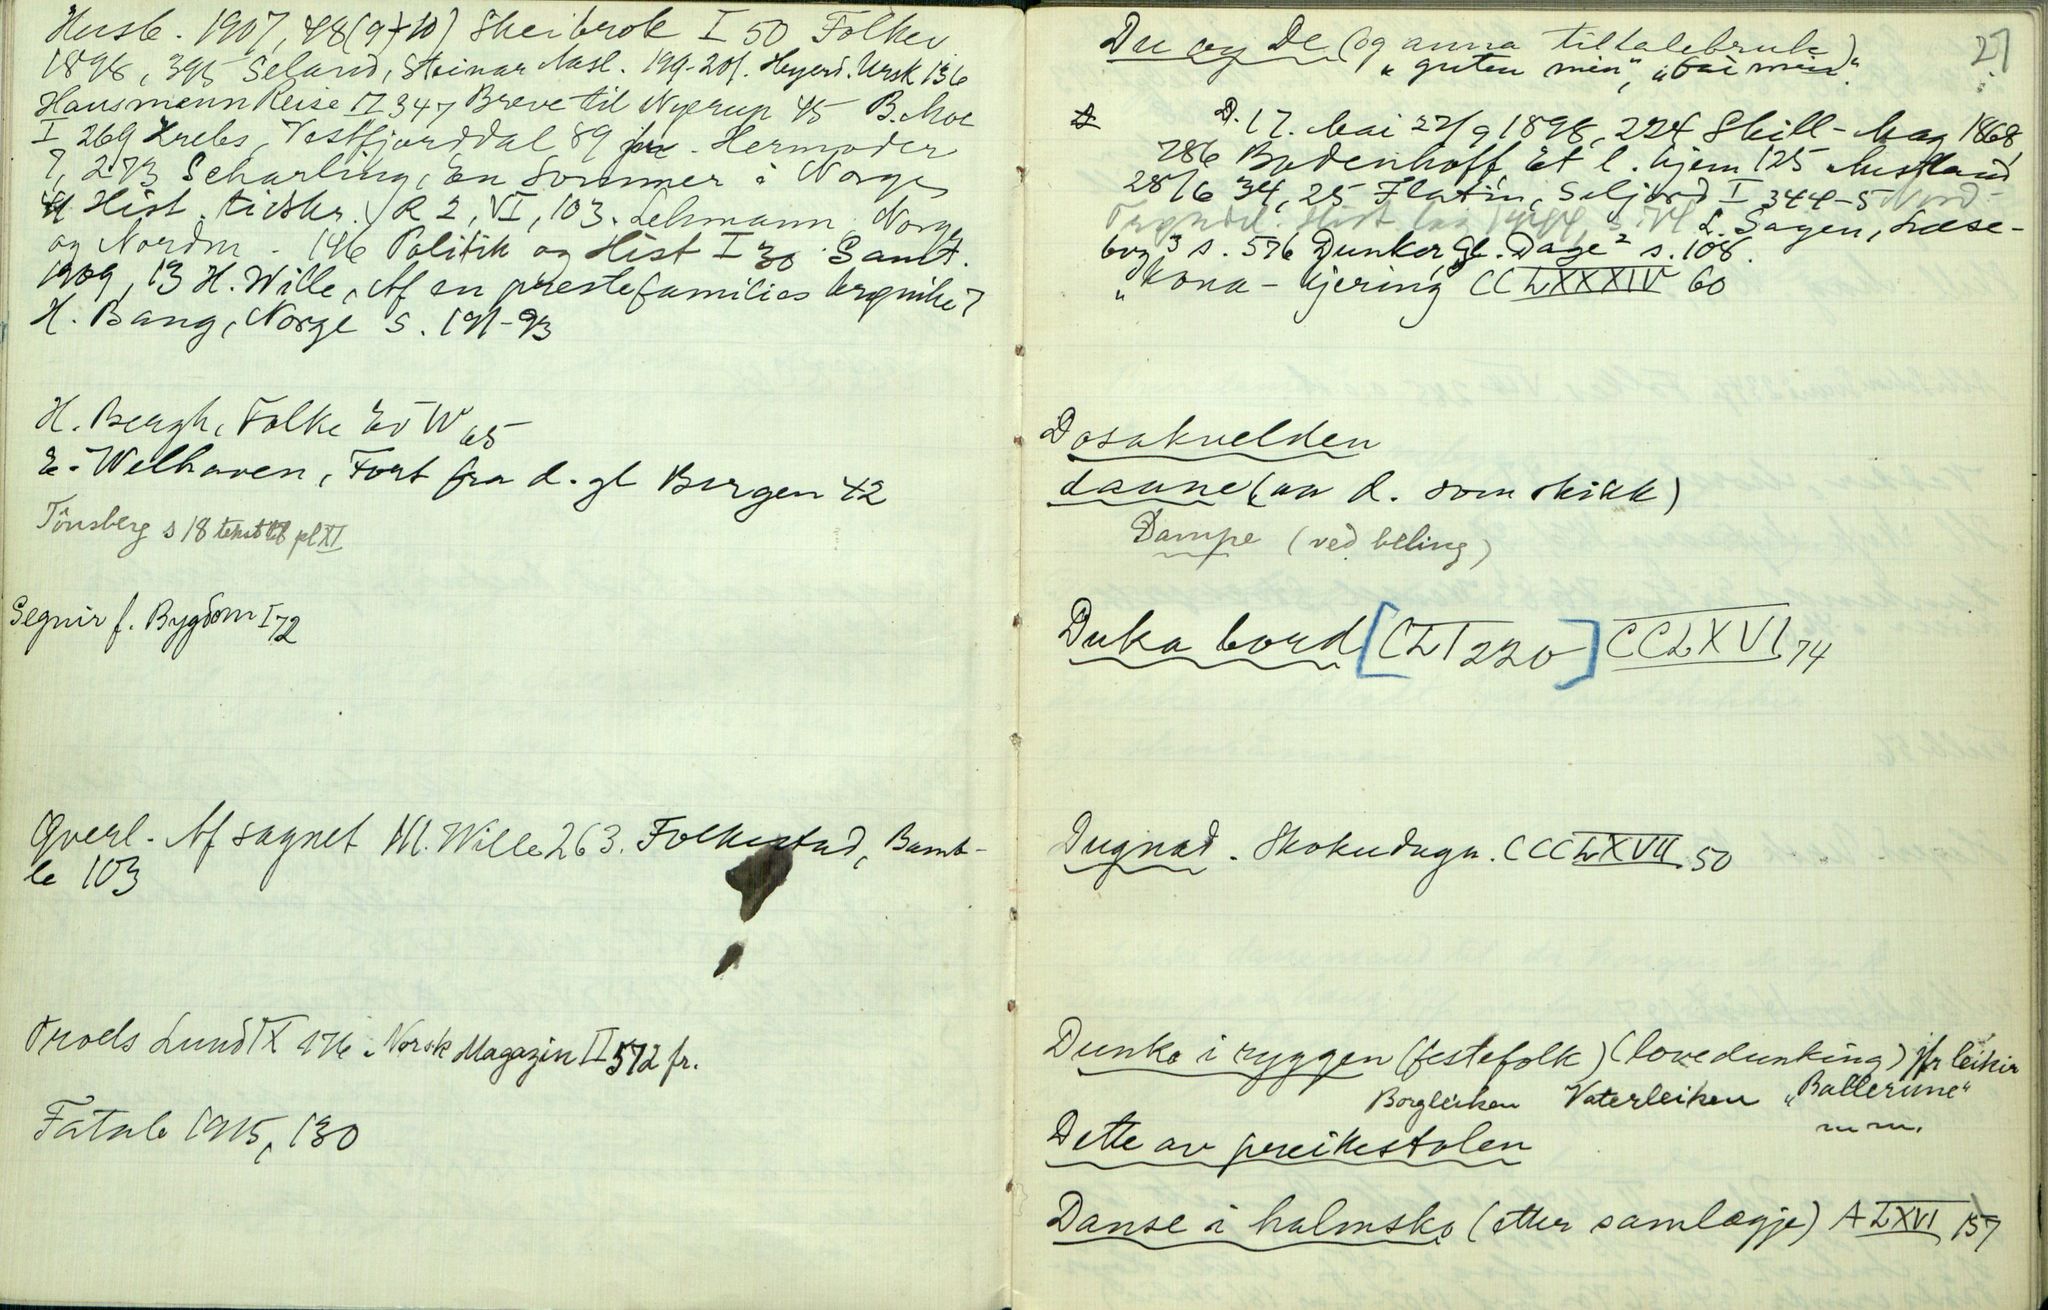 Husb. 1907, 48 (9+10) Skeibrok I 50 Folkev
1898, 395 Seland, Steinar Aasl. 199-201. Høyerd. Ursk 136
Hausmann Reise II 347 Breve til Nyerup 45 B. Moe
I 269 Krebs, Vestfjorddal 89 Hermoder
7, 273 Scharling, En Sommer i Norge
Hist. tidskr. R 2, VI, 103. Lehmann, Norge
og Nordm. 146 Politik og Hist I 30 Samt.
1909, 13 H. Wille, Af en præstefamilies krønike 7
H. Bang, Norge s. 191-93
H. Bergh, Folke Ev W 65
E. Welhaven, Fort fra d. gl Bergen 42
Tönsberg s 18 tekst til pl XI
Segnir f. Bygdom I 72
Qverl. Af sagnet Hl. Wille 263. Folkestad, Bamb-
le 103
Troels Lund IX 176. Norsk Magazin II 572 fr.
Fatab 1915, 130
27
Du og De (og anna tiltalebruk)
"guten min", "far min".
D. 17. Mai 27/9 1898, 224 Skill-Mag 1868,
786 Bodenhoff, Et l. hjem 125 Austland
28/6 34, 25 Flatin, Seljord I 344-5 Nord-
L. Sagen, Læse-
bog 3 s. 576 Dunker, Gl. Dage 2 s. 108.
"Kona - kjering CCLXXXIV 60
Dosakvelden
daune (aa d. som skikk)
Dampe (ved beling)
Duka bord [CLI 220] CCLXVI 74
Dugnad. Skokudugn. CCCLXVII 50
Dunke i ryggen (festefolk) (lovedunking) jfr leikir
Borgleiken Vaterleiken "Ballerune"
m m.
Dette av preikestolen
Danse i halmsko (etter samlægje) A LXVI 157